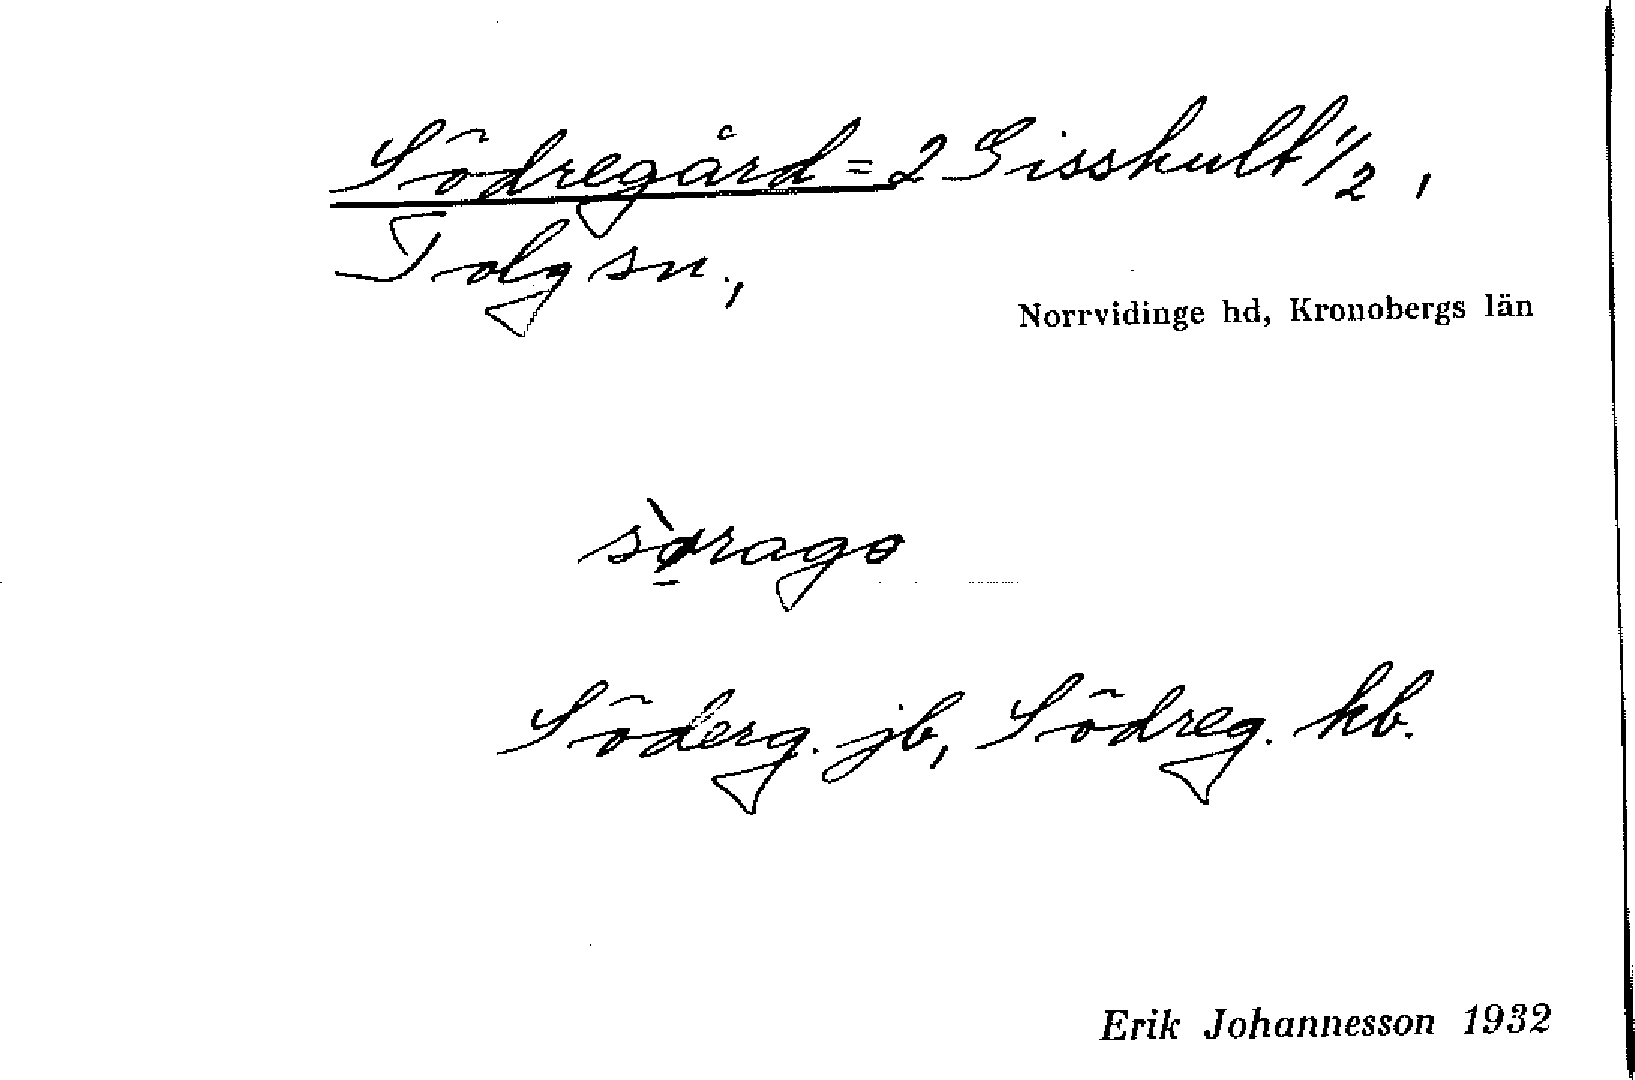 Södregård = 2 Gisshult 1/2,
Tolg sn.,
Norrvidinge hd, Kronobergs län
sørago
Söderg. jb, Södreg. kb.
Erik Johannesson 1932